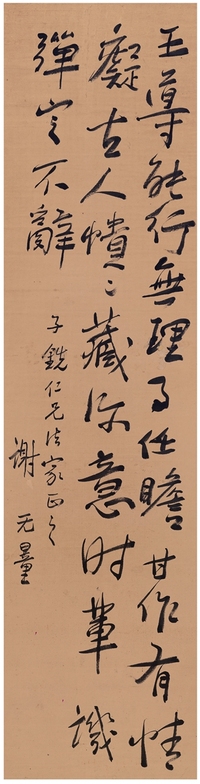 王導能行無理事任瞻甘作有情
癡古人憒〻藏深意时輩譏
彈定不辭
子銑仁兄法家正之
谢无量